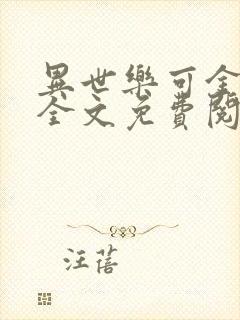 異世樂可全
全文免費閱
汪蓓